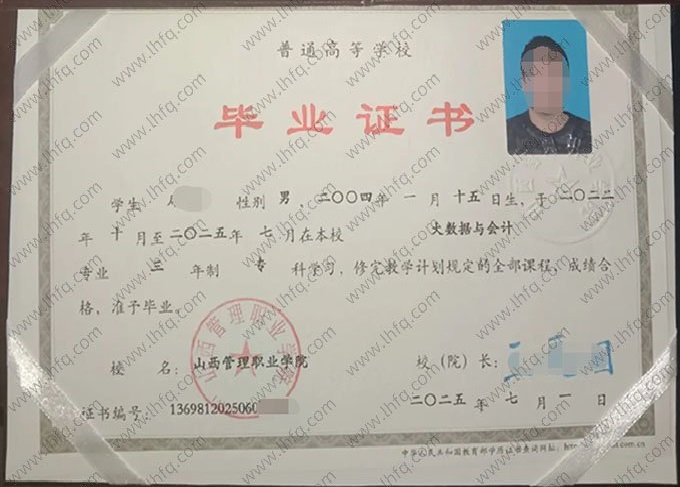 普通高等学校
毕业证书
学生 性别 男，二〇〇四年 一 月 十五日生，于二〇二二
年 十 月至二〇二五年 七 月在本校 大数据与会计
专业 三 年制 专 科学习，修完教学计划规定的全部课程，成绩合
格，准予毕业。
校 名：山西管理职业学院 校（院）长：
山西管理职业学院
证书编号：1369812025060 二〇二五 年 七 月 一 日
中华人民共和国教育部学历证书查询网址：
www.lhfq.com